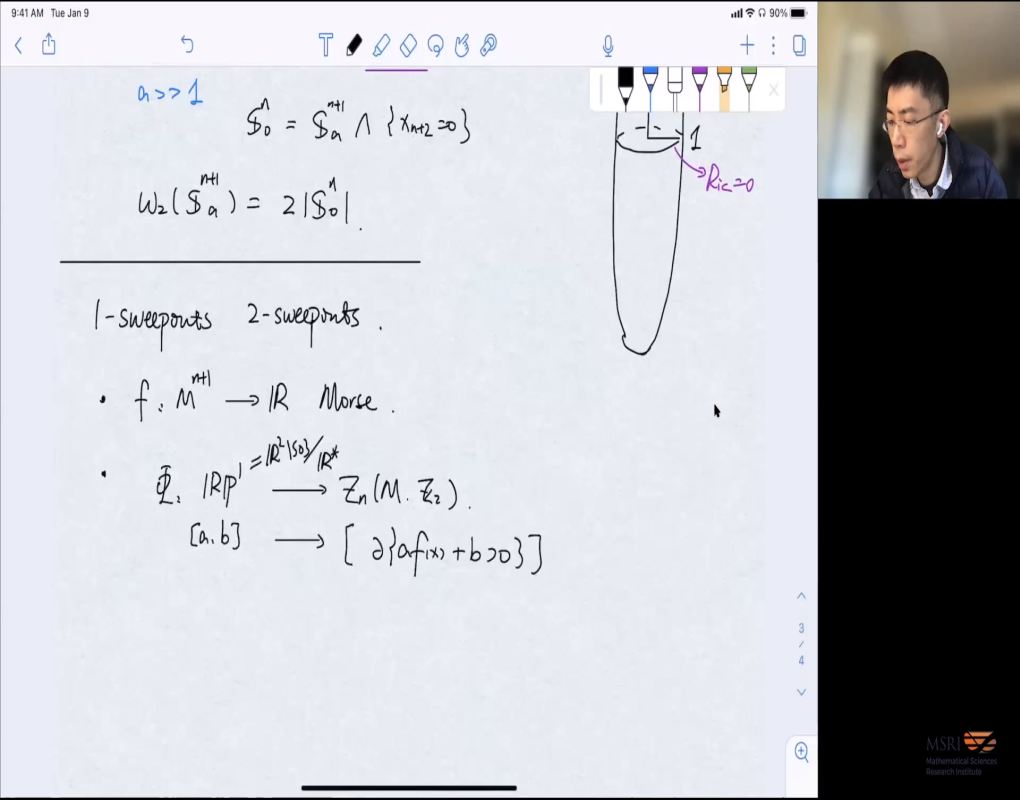 9:41 AM Tue Jan 9
90%
a >> 1
S₀ⁿ = Sₐⁿ⁺¹ ∧ {xₙ₊₂=0}
1
Ric=0
ω₂(Sₐⁿ⁺¹) = 2|S₀ⁿ|.
1-sweepouts 2-sweepouts.
• f: Mⁿ⁺¹ → ℝ Morse.
• Φ: ℝP¹ = ℝ²\{0}/ℝ* → Zₙ(M. ℤ₂).
[a.b] → [∂{af(x)+b>0}]
3
/
4
MSRI
Mathematical Sciences
Research Institute